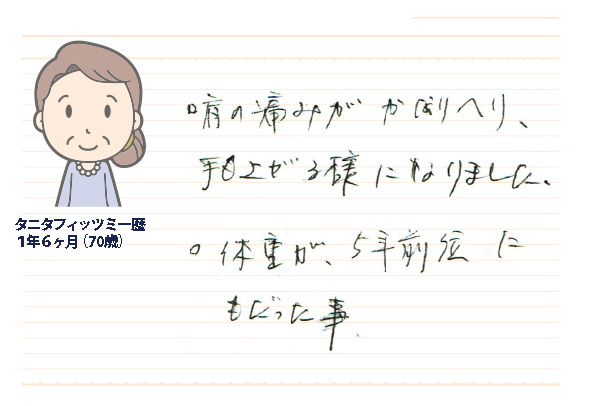 ○肩の痛みが かなりへり、
手も上がる様になりました。
○体重が、5年前位に
もどった事
タニタフィッツミー歴
1年6ヶ月（70歳）